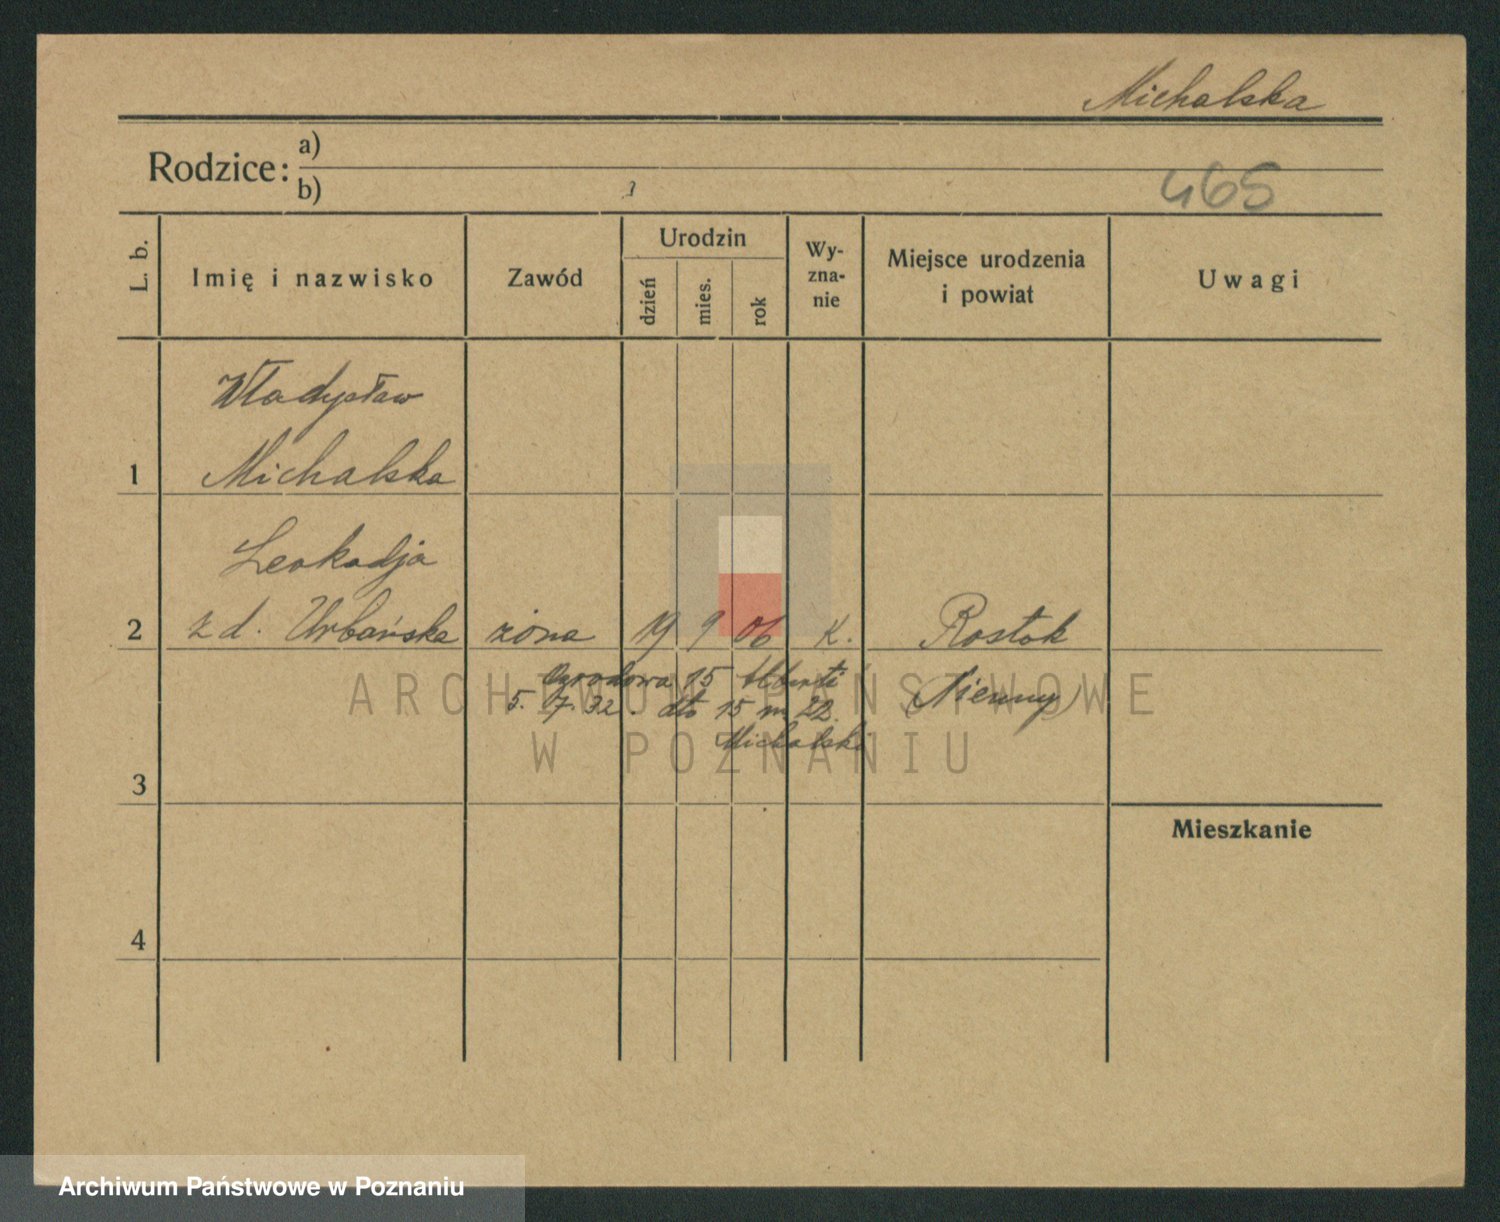 Michalska
Rodzice: a)
b)
465
L. b.
Imię i nazwisko
Zawód
Urodzin
dzień
mies.
rok
Wy-
zna-
nie
Miejsce urodzenia
i powiat
Uwagi
Władysław
1 Michalska
Leokadja
2 z d. Urbańska żona 19 9 06 K. Rostok
Ogrodowa 15 Alberti
Niemcy
5. 7. 32. dto 15 m 22.
Michalski
3
Mieszkanie
4
ARCHIWUM PAŃSTWOWE
W POZNANIU
Archiwum Państwowe w Poznaniu